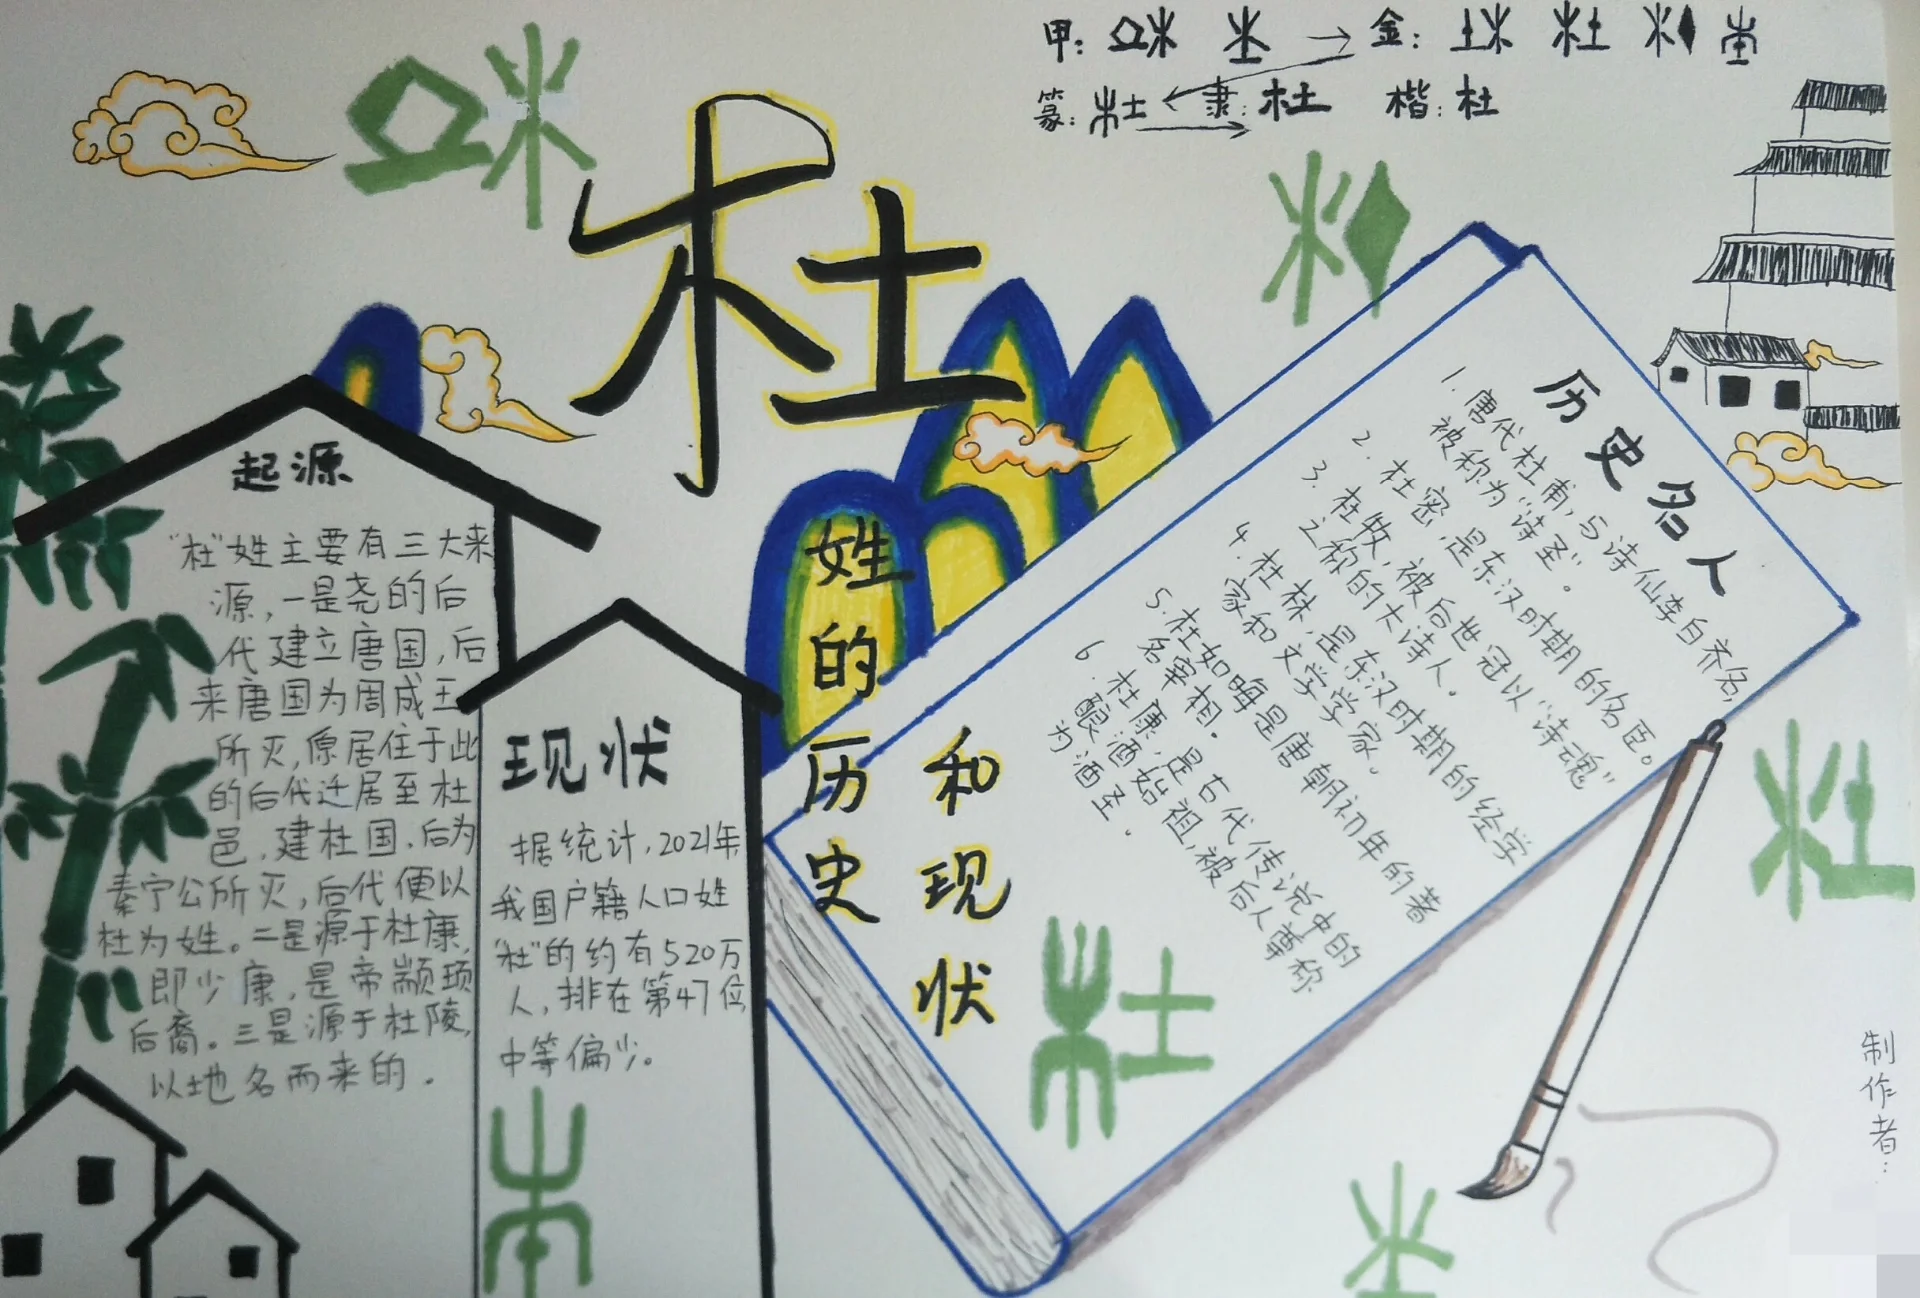 甲: 金:
篆: 杜 隶: 杜 楷: 杜
杜
姓的历史
和现状
起源
"杜"姓主要有三大来
源,一是尧的后
代建立唐国,后
来唐国为周成王
所灭,原居住于此
的后代迁居至杜
邑,建杜国,后为
秦宁公所灭,后代便以
杜为姓。二是源于杜康,
即少康,是帝颛顼
后裔。三是源于杜陵,
以地名而来的.
现状
据统计,2021年
我国户籍人口姓
"杜"的约有520万
人,排在第47位
中等偏少。
历史名人
1. 唐代杜甫,与诗仙李白齐名,
被称为"诗圣"。
2. 杜密,是东汉时期的名臣。
3. 杜牧,被后世冠以"诗魂"
之称的大诗人.
4. 杜林,是东汉时期的经学
家和文学学家。
5. 杜如晦是唐朝初年的著
名宰相.
6. 杜康,是古代传说中的
酿酒始祖,被后人尊称
为酒圣.
制作者: